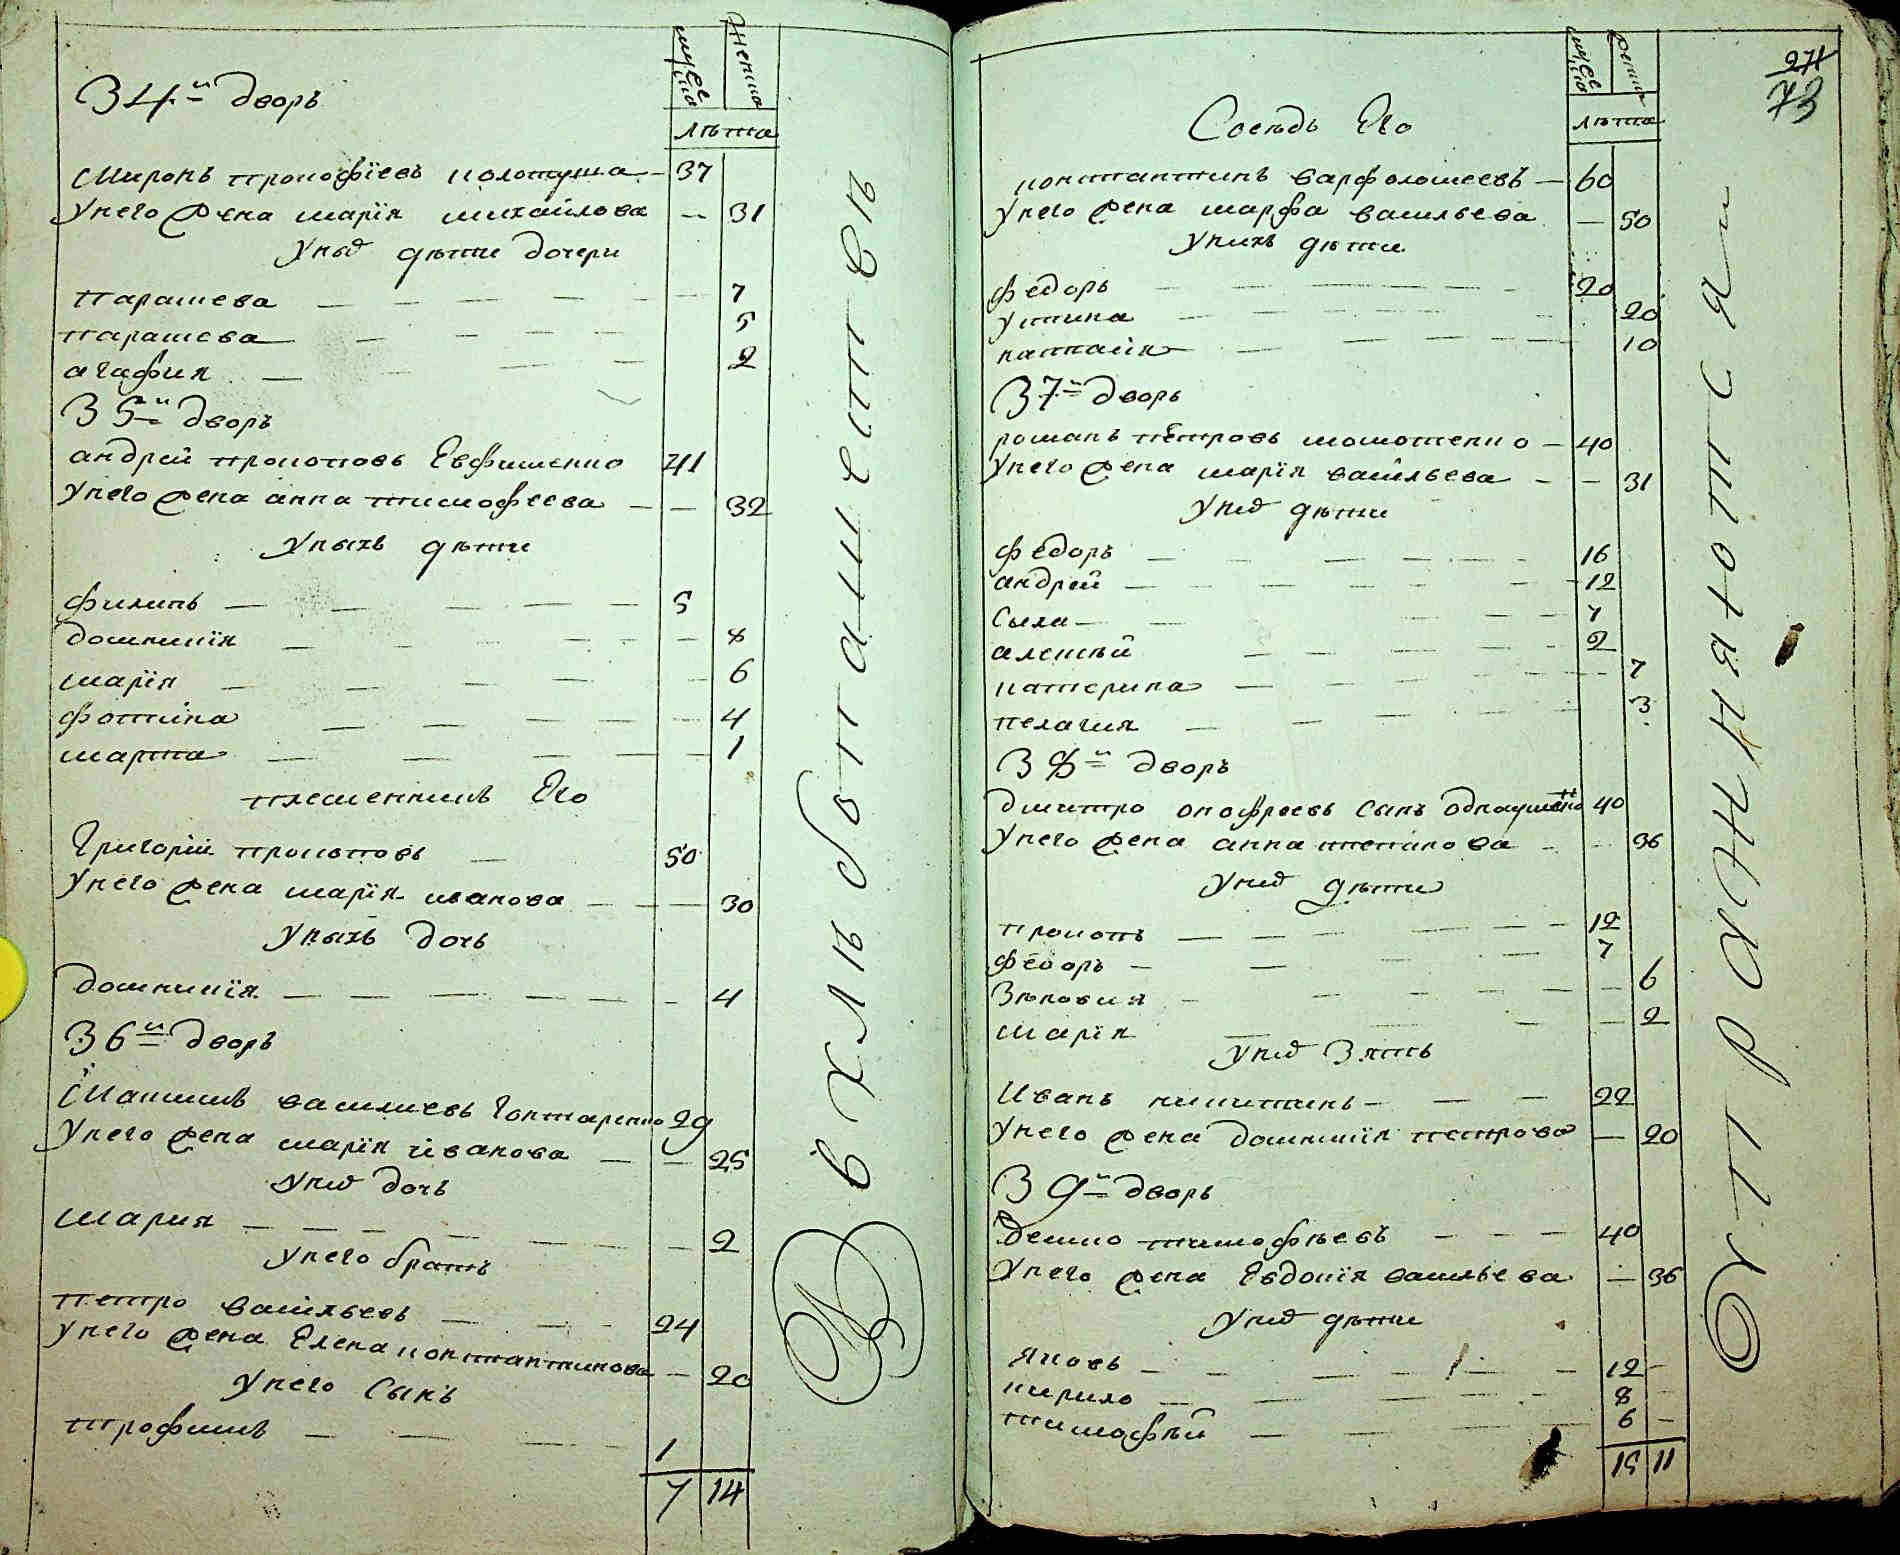 мужеска
женска
лѣта
34й дворъ
Миронъ прокофїевъ колотуша 37
Унего жена марїя михайлова 31
Унıхъ дѣти дочери
парасцева 7
парасцева 5
агафия 2
35й дворъ
андрей прокоповъ Евфименко 41
Унего жена анна тимофеева 32
Уныхъ дѣти
филипъ 5
домникїя 8
марїя 6
фотина 4
марта 1
племенникъ Его
Григорїй прокоповъ 50
Унего жена марїя иванова 30
Уныхъ дочь
домникїя 4
36й дворъ
Максимъ василиевъ Гонтаренко 29
Унего жена марїя иванова 25
Унихъ дочь
мария 2
Унего братъ
петро васильевъ 24
Унего жена Елена константинова 20
Унего Сынъ
трофимъ 1
7 14
В вхлѣбопашествѣ
мужеска
женска
лѣта
271
73
Сосѣдъ Его
константинъ варфоломеевъ 60
Унего жена марфа васильева 50
Унихъ дѣти
федоръ 20
устина 20
наталия 10
37й дворъ
романъ петровъ момотенко 40
Унего жена марїя васильева 31
Унихъ дѣти
федоръ 16
андрей 12
Сыла 7
алексѣй 2
катерина 7
пелагия 3
38й дворъ
дмитро онофреевъ сынъ
40
Унего жена анна
36
Унихъ дѣти
прокопъ 12
федоръ 7
Зѣновия 6
марїя 2
Унихъ Зять
Иванъ никитинъ 22
Унего жена домникїя петрова 20
39й дворъ
Демко тимофѣевъ 40
Унего жена Евдокїя васильева 36
Унихъ дѣти
яковъ 12
кирило 8
тимофѣй 6
15 11
Упражняются